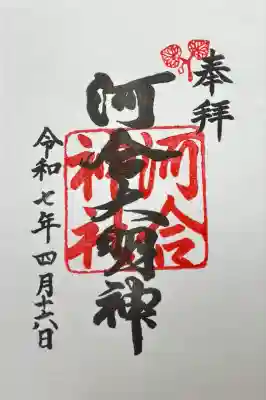 奉拝
河合大明神
河合
神社
令和七年四月十六日